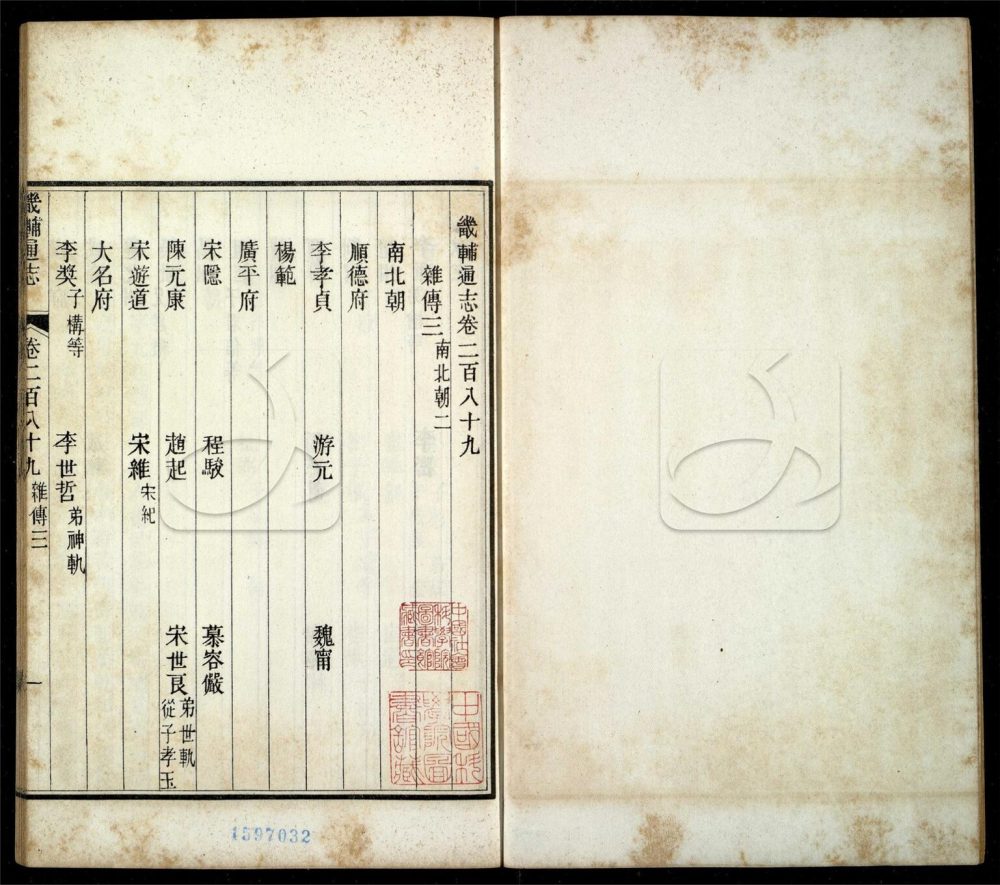 畿輔通志卷二百八十九
雜傳三 南北朝二
南北朝
順德府
李孝貞 游元 魏甯
楊範
廣平府
宋隱 程駿 慕容儼
陳元康 趙起 宋世良 弟世軌 從子孝玉
宋遊道 宋維 宋紀
大名府
李奬 子構等 李世哲 弟神軌
畿輔通志 卷二百八十九 雜傳三 一
中國社會科學院圖書館藏書印
1597032